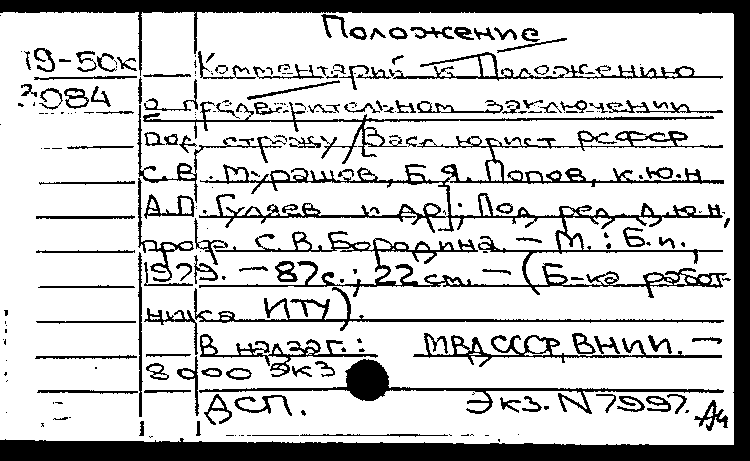 Положение
19-50к Комментарий к Положению
3084 о предварительном заключении
под стражу / [Засл. юрист РСФСР
С.В. Мурашов, Б.Я. Попов, к.ю.н.
А.П. Гуляев и др]; Под ред. д.ю.н,
проф. С.В. Бородина. – М.: Б.и.,
1979. – 87с.; 22см. – (Б-ка работ-
ника ИТУ).
В надзаг.: МВД СССР, ВНИИ. –
8000 экз
ДСП. Экз. N7997.